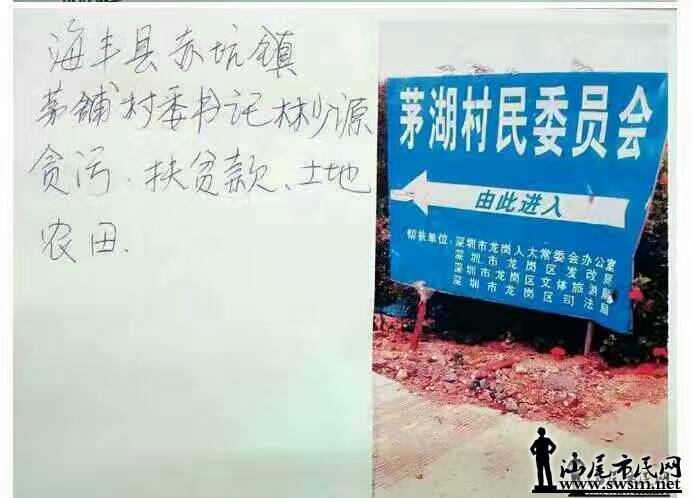 海丰县赤坑镇
茅舖村委书记林少源
贪污、扶贫款、土地
农田.
茅湖村民委员会
由此进入
帮扶单位:深圳市龙岗人大常委会办公室
深圳市龙岗区发改局
深圳市龙岗区文体旅游局
深圳市龙岗区司法局
汕尾市民网
www.swsm.net